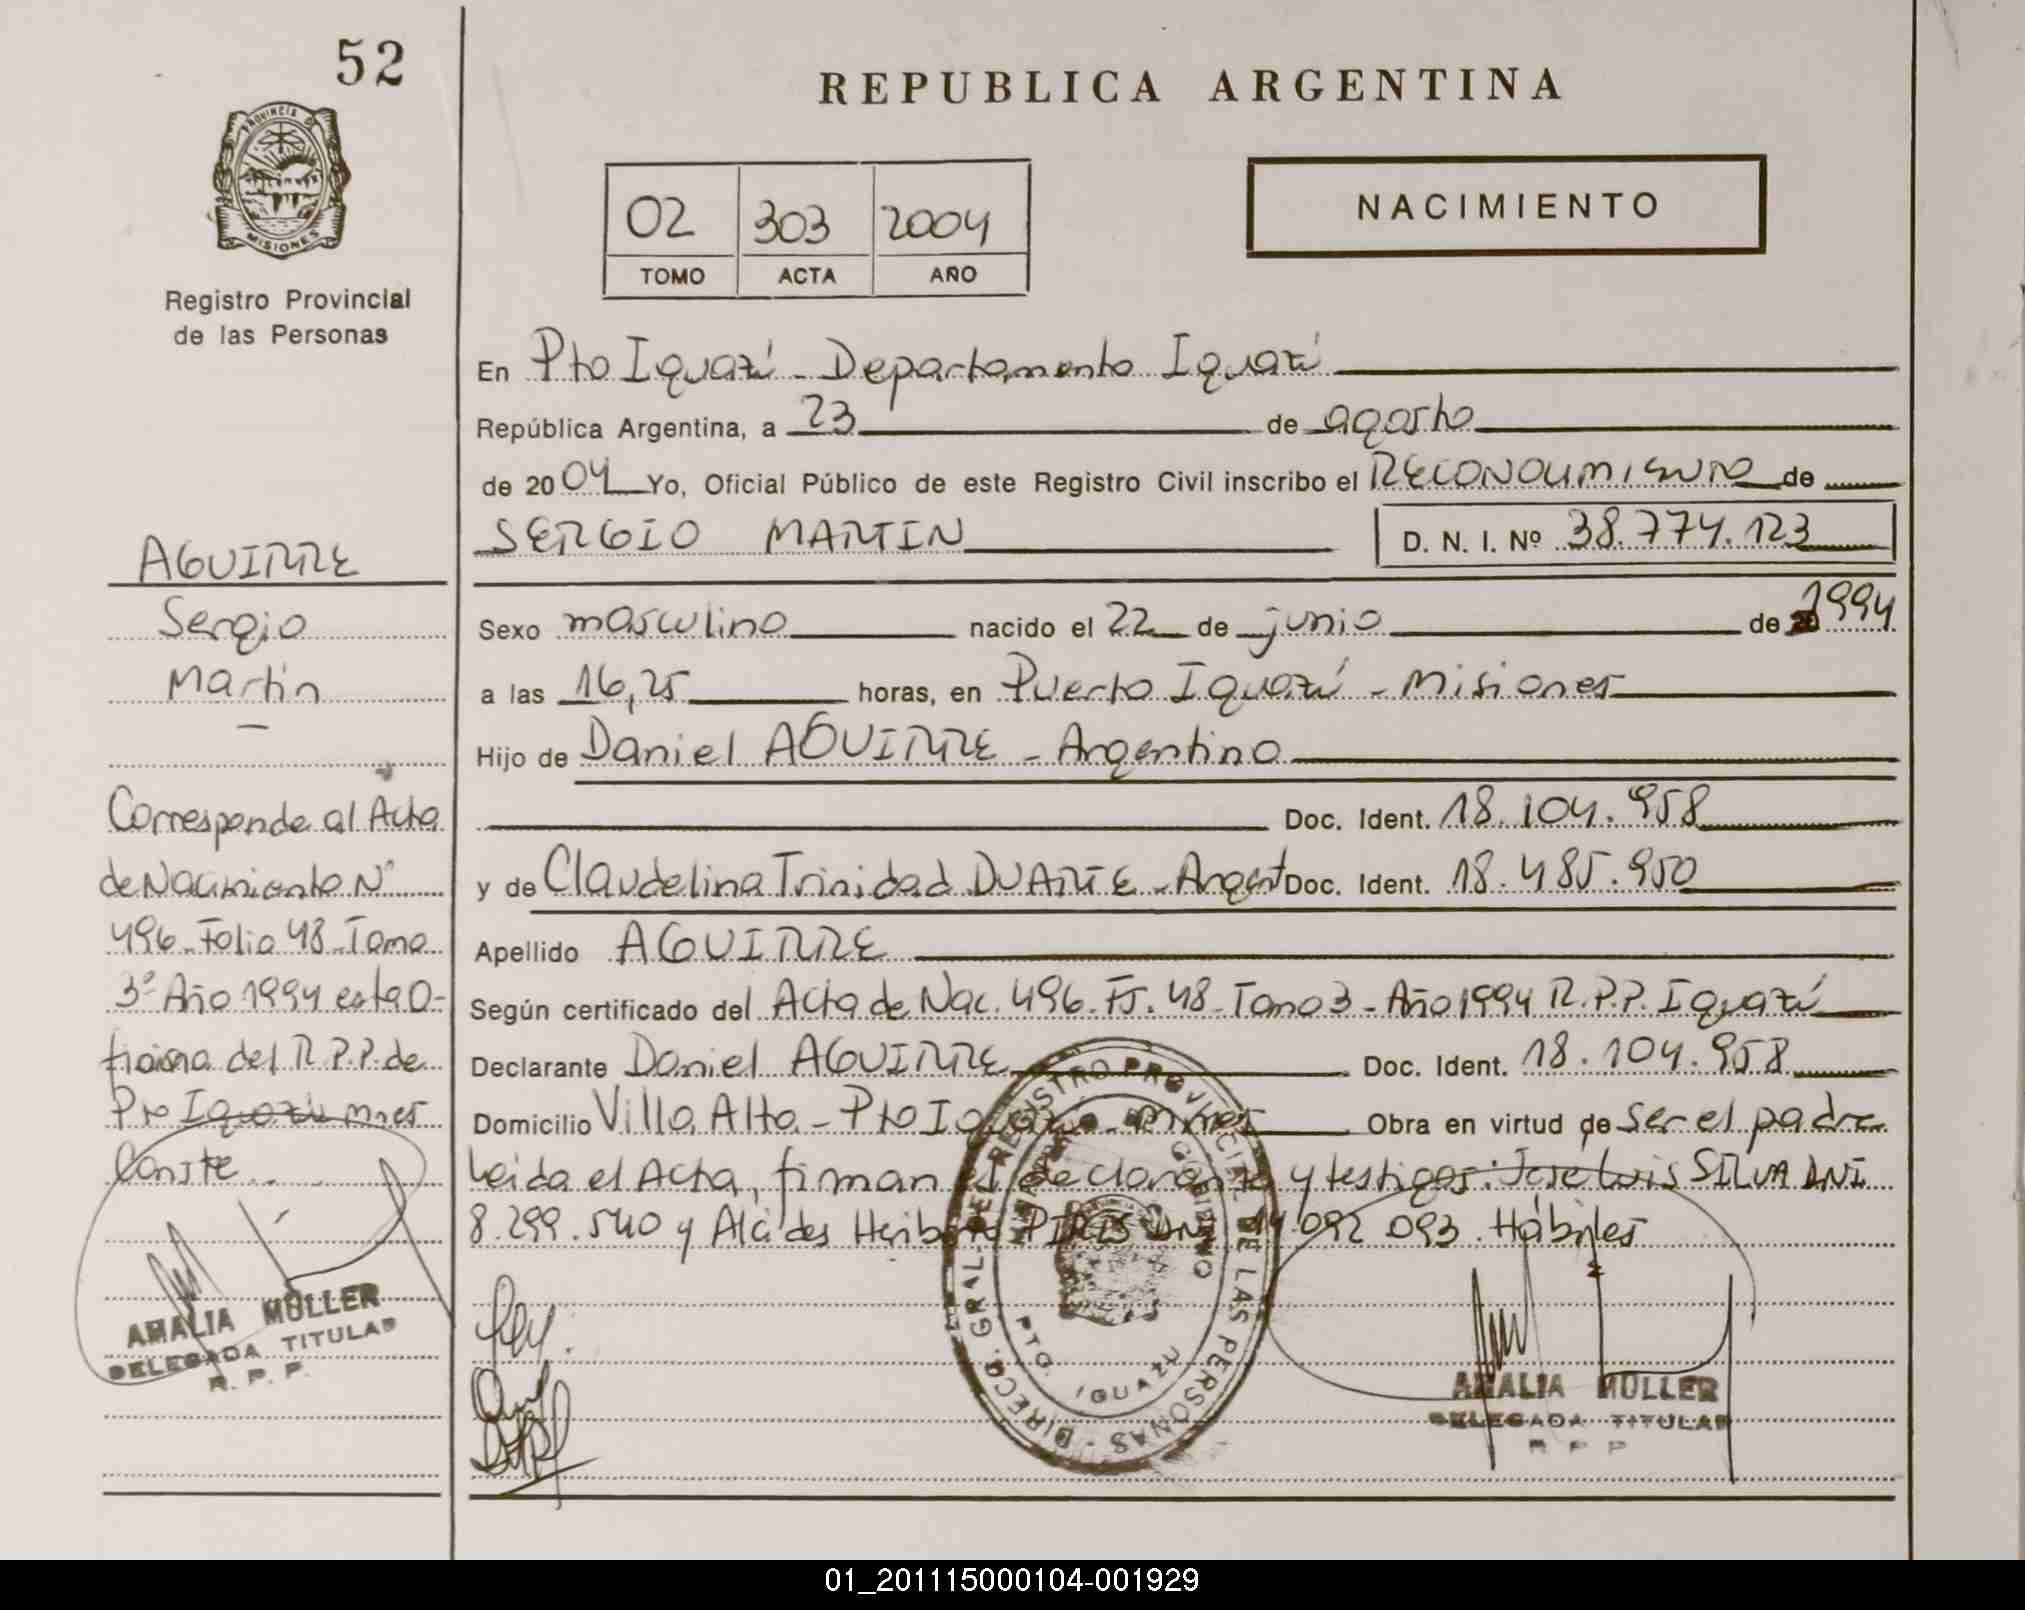 52
PROVINCIA DE
MISIONES
Registro Provincial
de las Personas
REPUBLICA ARGENTINA
02 303 2004
TOMO ACTA AÑO
NACIMIENTO
En Pto Iguazú - Departamento Iguazú
República Argentina, a 23 de agosto
de 2004 Yo, Oficial Público de este Registro Civil inscribo el RECONOCIMIENTO de
SERGIO MARTIN D. N. I. Nº 38.774.123
Sexo masculino nacido el 22 de junio de 1994
a las 16,25 horas, en Puerto Iguazú - Misiones
Hijo de Daniel AGUIRRE - Argentino
Doc. Ident. 18.104.958
y de Claudelina Trinidad DUARTE - Argent Doc. Ident. 18.485.950
Apellido AGUIRRE
Según certificado del Acta de Nac. 496 - Fº. 48 - Tomo 3 - Año 1994 R.P.P. Iguazú
Declarante Daniel AGUIRRE Doc. Ident. 18.104.958
Domicilio Villa Alta - Pto Iguazú - Mnes Obra en virtud de ser el padre
Leida el Acta, firman el declarante y testigos: José Luis SILVA DNI
8.299.540 y Alcides Heriberto PIRIS DNI 14.092 093. Hábiles
AGUIRRE
Sergio
Martín
-
Corresponde al Acta
de Nacimiento Nº
496 - Folio 48 - Tomo
3º Año 1994 esta O-
ficina del R.P.P. de
Pto Iguazú Mnes
Conste
AMALIA MÜLLER
DELEGADA TITULAR
R. P. P.
DIRECC. GRAL. DEL REGISTRO PROVINCIAL DE LAS PERSONAS
GOBIERNO
PTO. IGUAZU
AMALIA MULLER
DELEGADA TITULAR
R P P
01_201115000104-001929